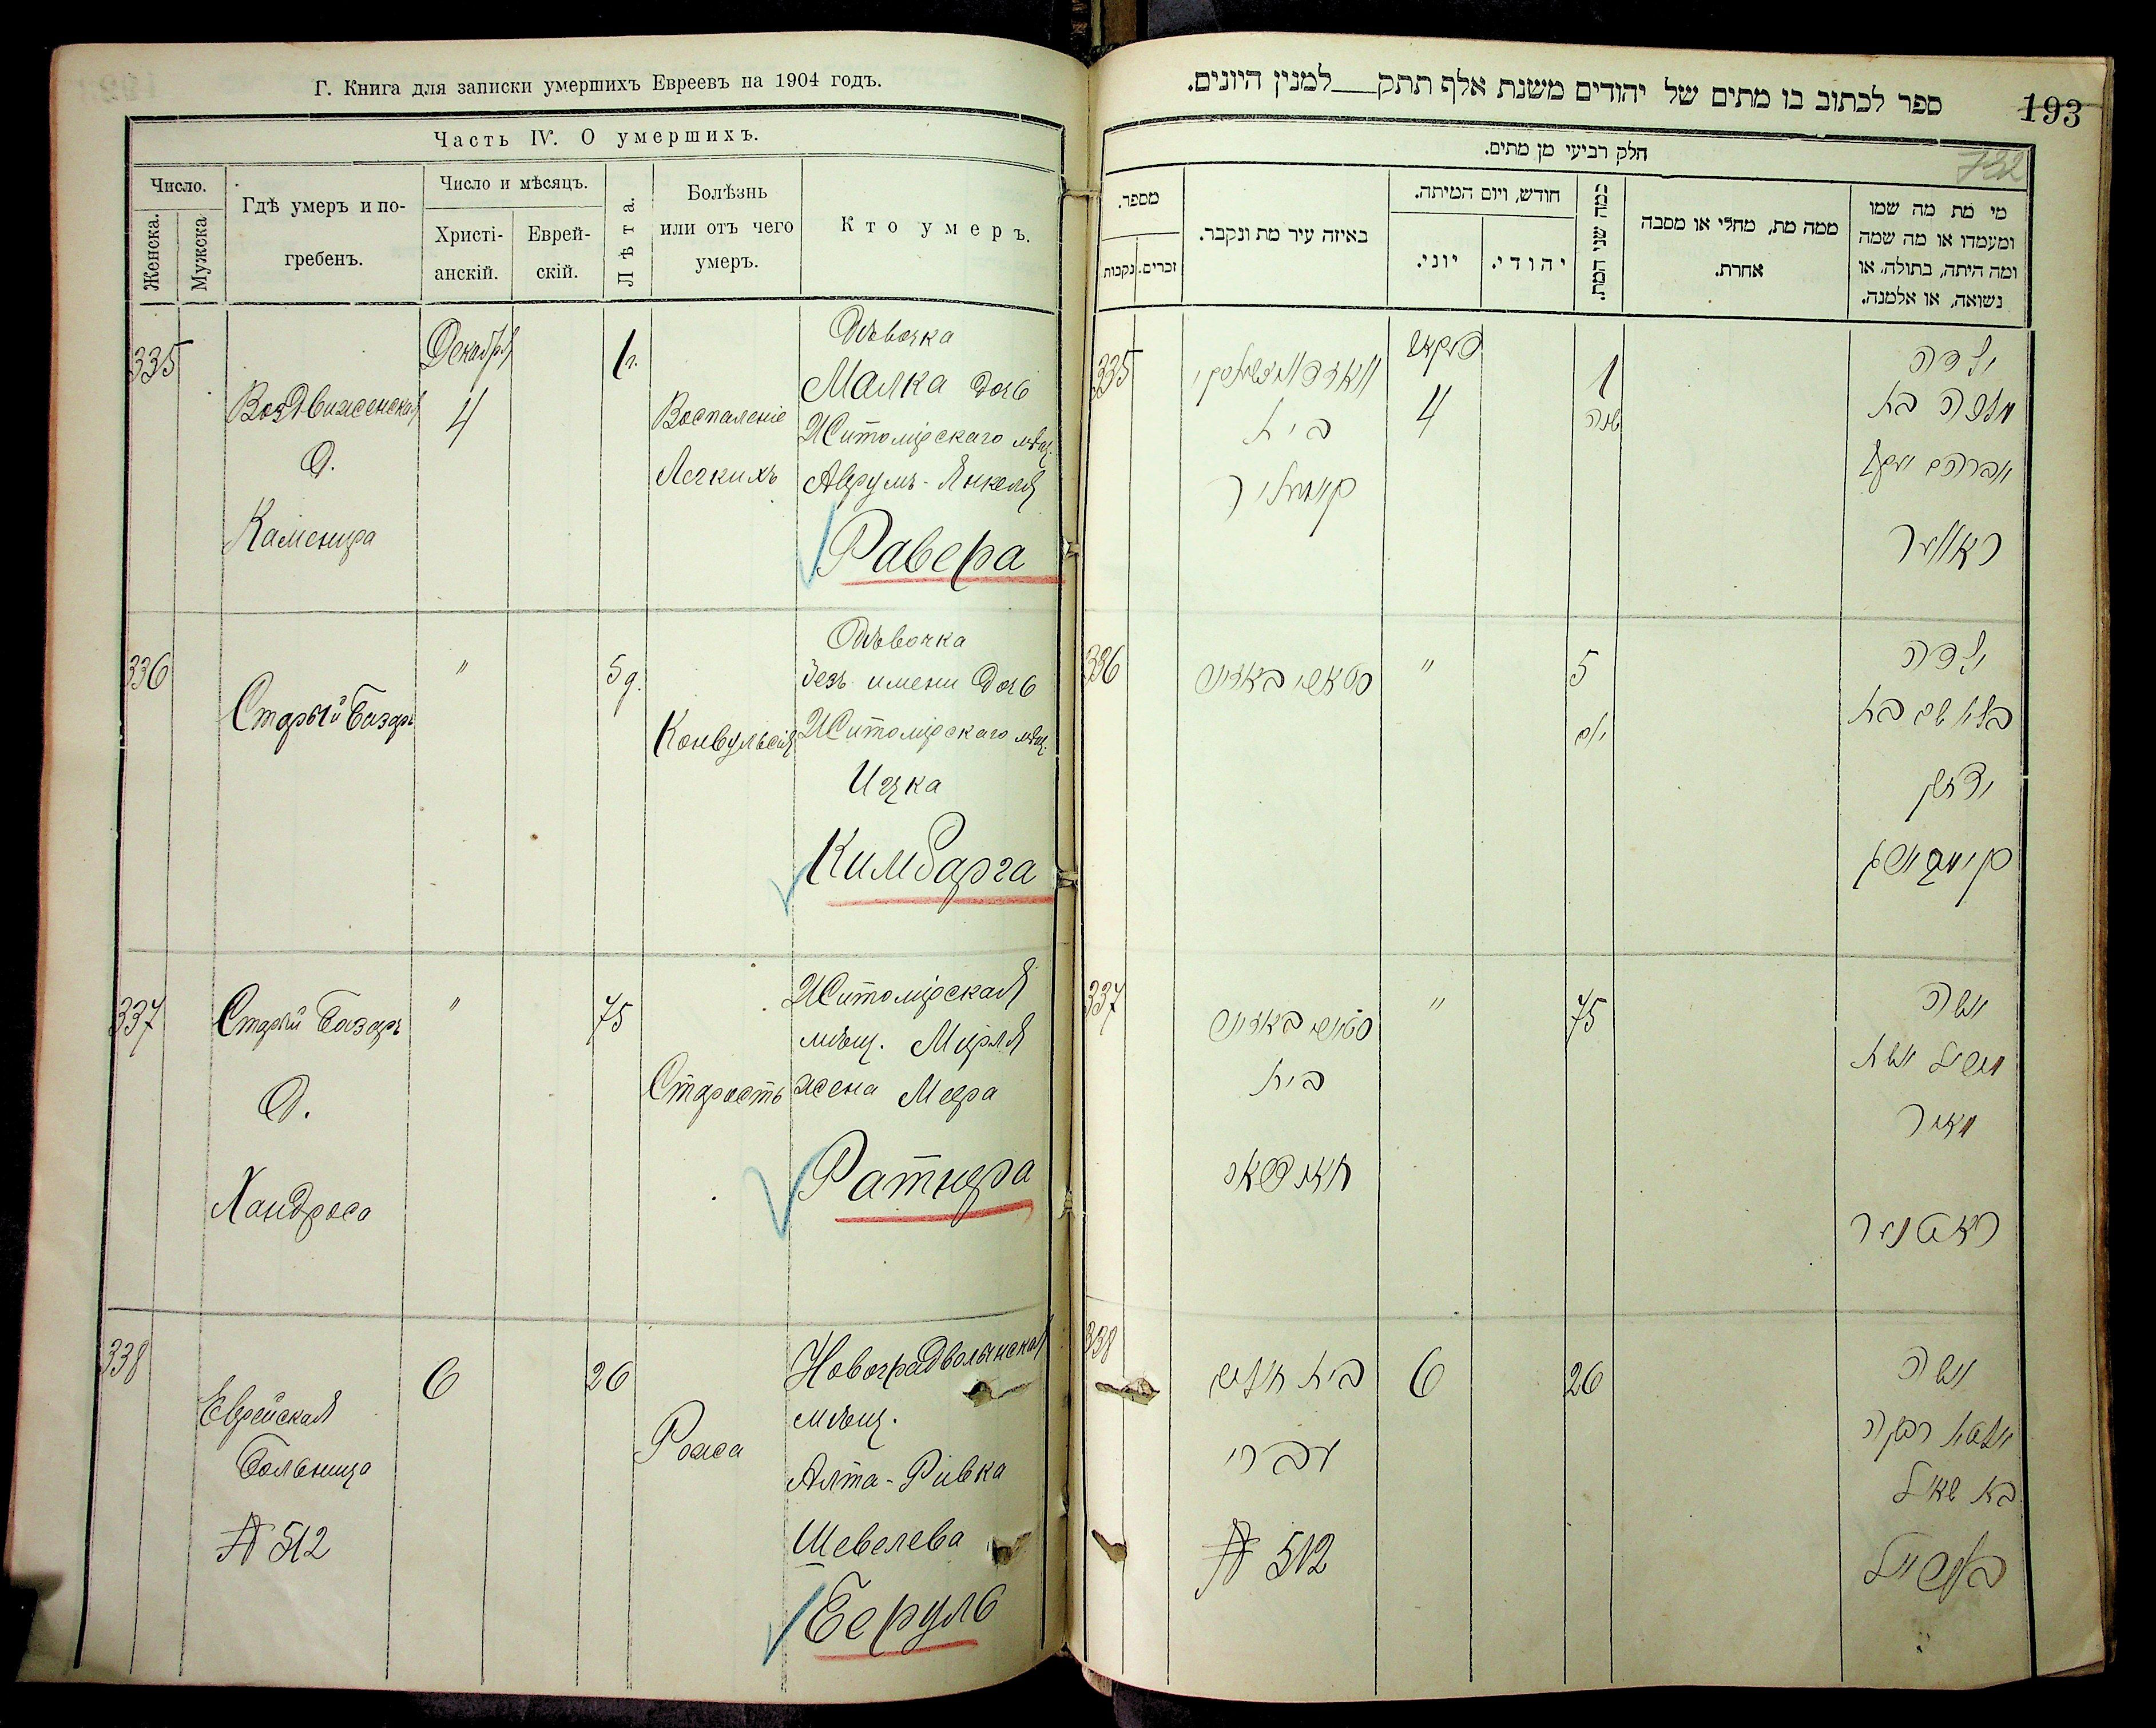 Г. Книга для записки умершихъ Евреевъ на 1904 годъ.
Часть IV. О умершихъ.
Число.
Женска.
Мужска
Гдѣ умеръ и по-
гребенъ.
Число и мѣсяцъ.
Христі-
анскій.
Еврей-
скій.
Лѣта.
Болѣзнь
или отъ чего
умеръ.
Кто умеръ.
335
Воздвиженская
д.
Каменира
Декабря
4
1 г.
Воспаленіе
Легкихъ
Дѣвочка
Малка дочь
Житомірскаго мѣщ.
Аврумъ-Янкеля
Равера
336
Старый Базаръ
"
5 д.
Конвульсія
Дѣвочка
безъ имени дочь
Житомірскаго мѣщ.
Ицка
Кимбарга
337
Старый Базаръ
д.
Хандроса
"
75
Старость
Житомірская
мѣщ. Мирля
жена Меера
Ратнера
338
Еврейская
Больница
№ 512
6
26
Рожа
Новоградволынская
мѣщ.
Алта-Ривка
Шевелева
Беруль
ספר לכתוב בו מתים של יהודים משנת אלף תתק למנין היונים.
193
732
חלק רביעי מן מתים.
מספר.
זכרים.
נקבות
באיזה עיר מת ונקבר.
חודש, ויום המיתה.
יוני.
יהודי.
כמה שני המת.
ממה מת, מחלי או מסבה
אחרת.
מי מת מה שמו
ומעמדו או מה שמה
ומה היתה, בתולה, או
נשואה, או אלמנה.
335
בית
4
1
שנה
ילדה
מלכה בת
אברהם יעקב
ראווער
336
סטארי באזאר
"
5
יום
ילדה
בלא שם בת
יצחק
קימבארג
337
סטארי באזאר
בית
"
75
אשה
אשת
מאיר
ראטנער
338
בית חולים
עברי
№ 512
6
26
אשה
אלטא רבקה